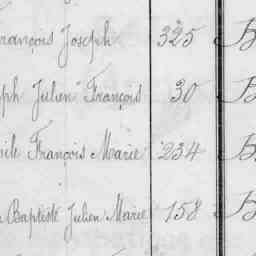 François Joseph 325 B
ph Julien François 30 B
ile François Marie 234 B
Baptiste Julien Marie 158 B